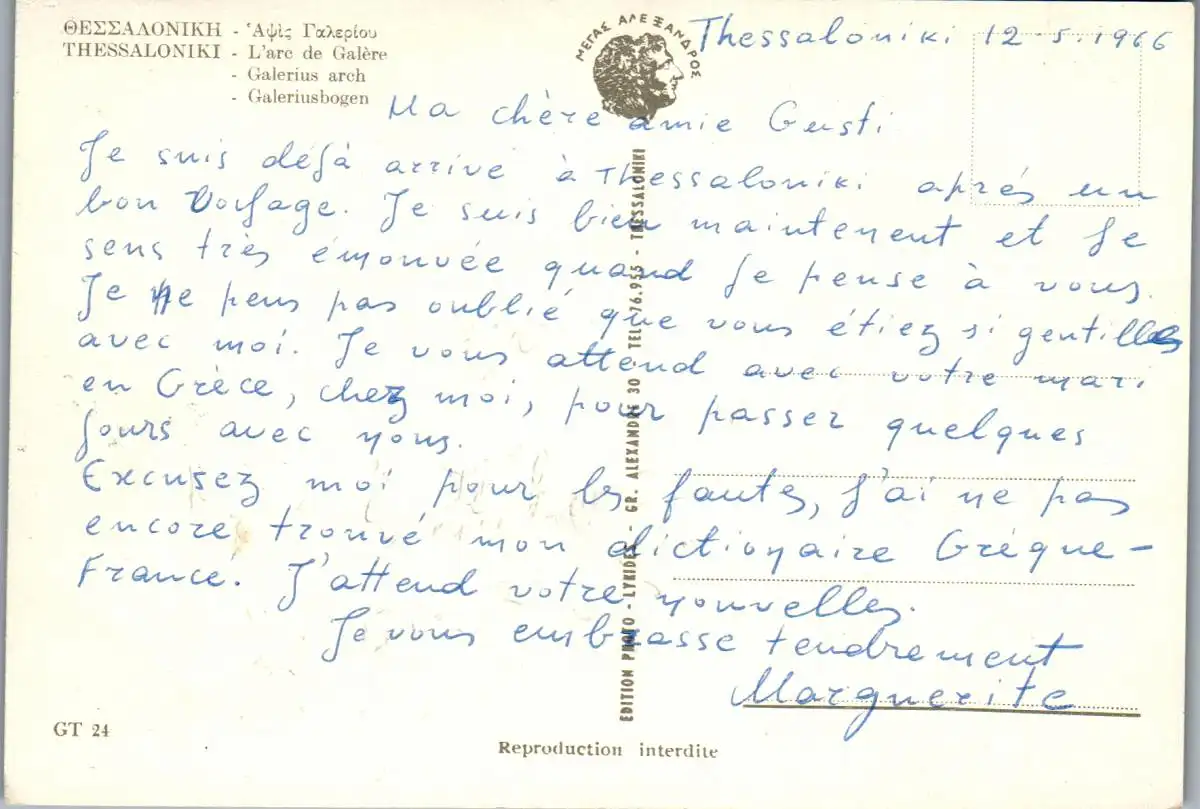 ΘΕΣΣΑΛΟΝΙΚΗ - Ἁψὶς Γαλερίου
THESSALONIKI - L'arc de Galère
- Galerius arch
- Galeriusbogen
ΜΕΓΑΣ ΑΛΕΞΑΝΔΡΟΣ
Thessaloniki 12-5.1966
Ma chère amie Gusti
Je suis déjà arrivé à Thessaloniki après un
bon Voyage. Je suis bien maintenent et je
sens très émouvée quand je pense à vous.
Je ne peus pas oublié que vous étiez si gentilles
avec moi. Je vous attend avec votre mari
en Grèce, chez moi, pour passer quelques
jours avec nous.
Excusez moi pour les fautes, j'ai ne pas
encore trouvé mon dictionaire Grèque-
France. J'attend votre nouvelles.
Je vous embrasse tendrement
Marguerite
EDITION PHOTO - LYKIDES - GR. ALEXANDRE 30 TEL. 76.955 - THESSALONIKI
GT 24
Reproduction interdite